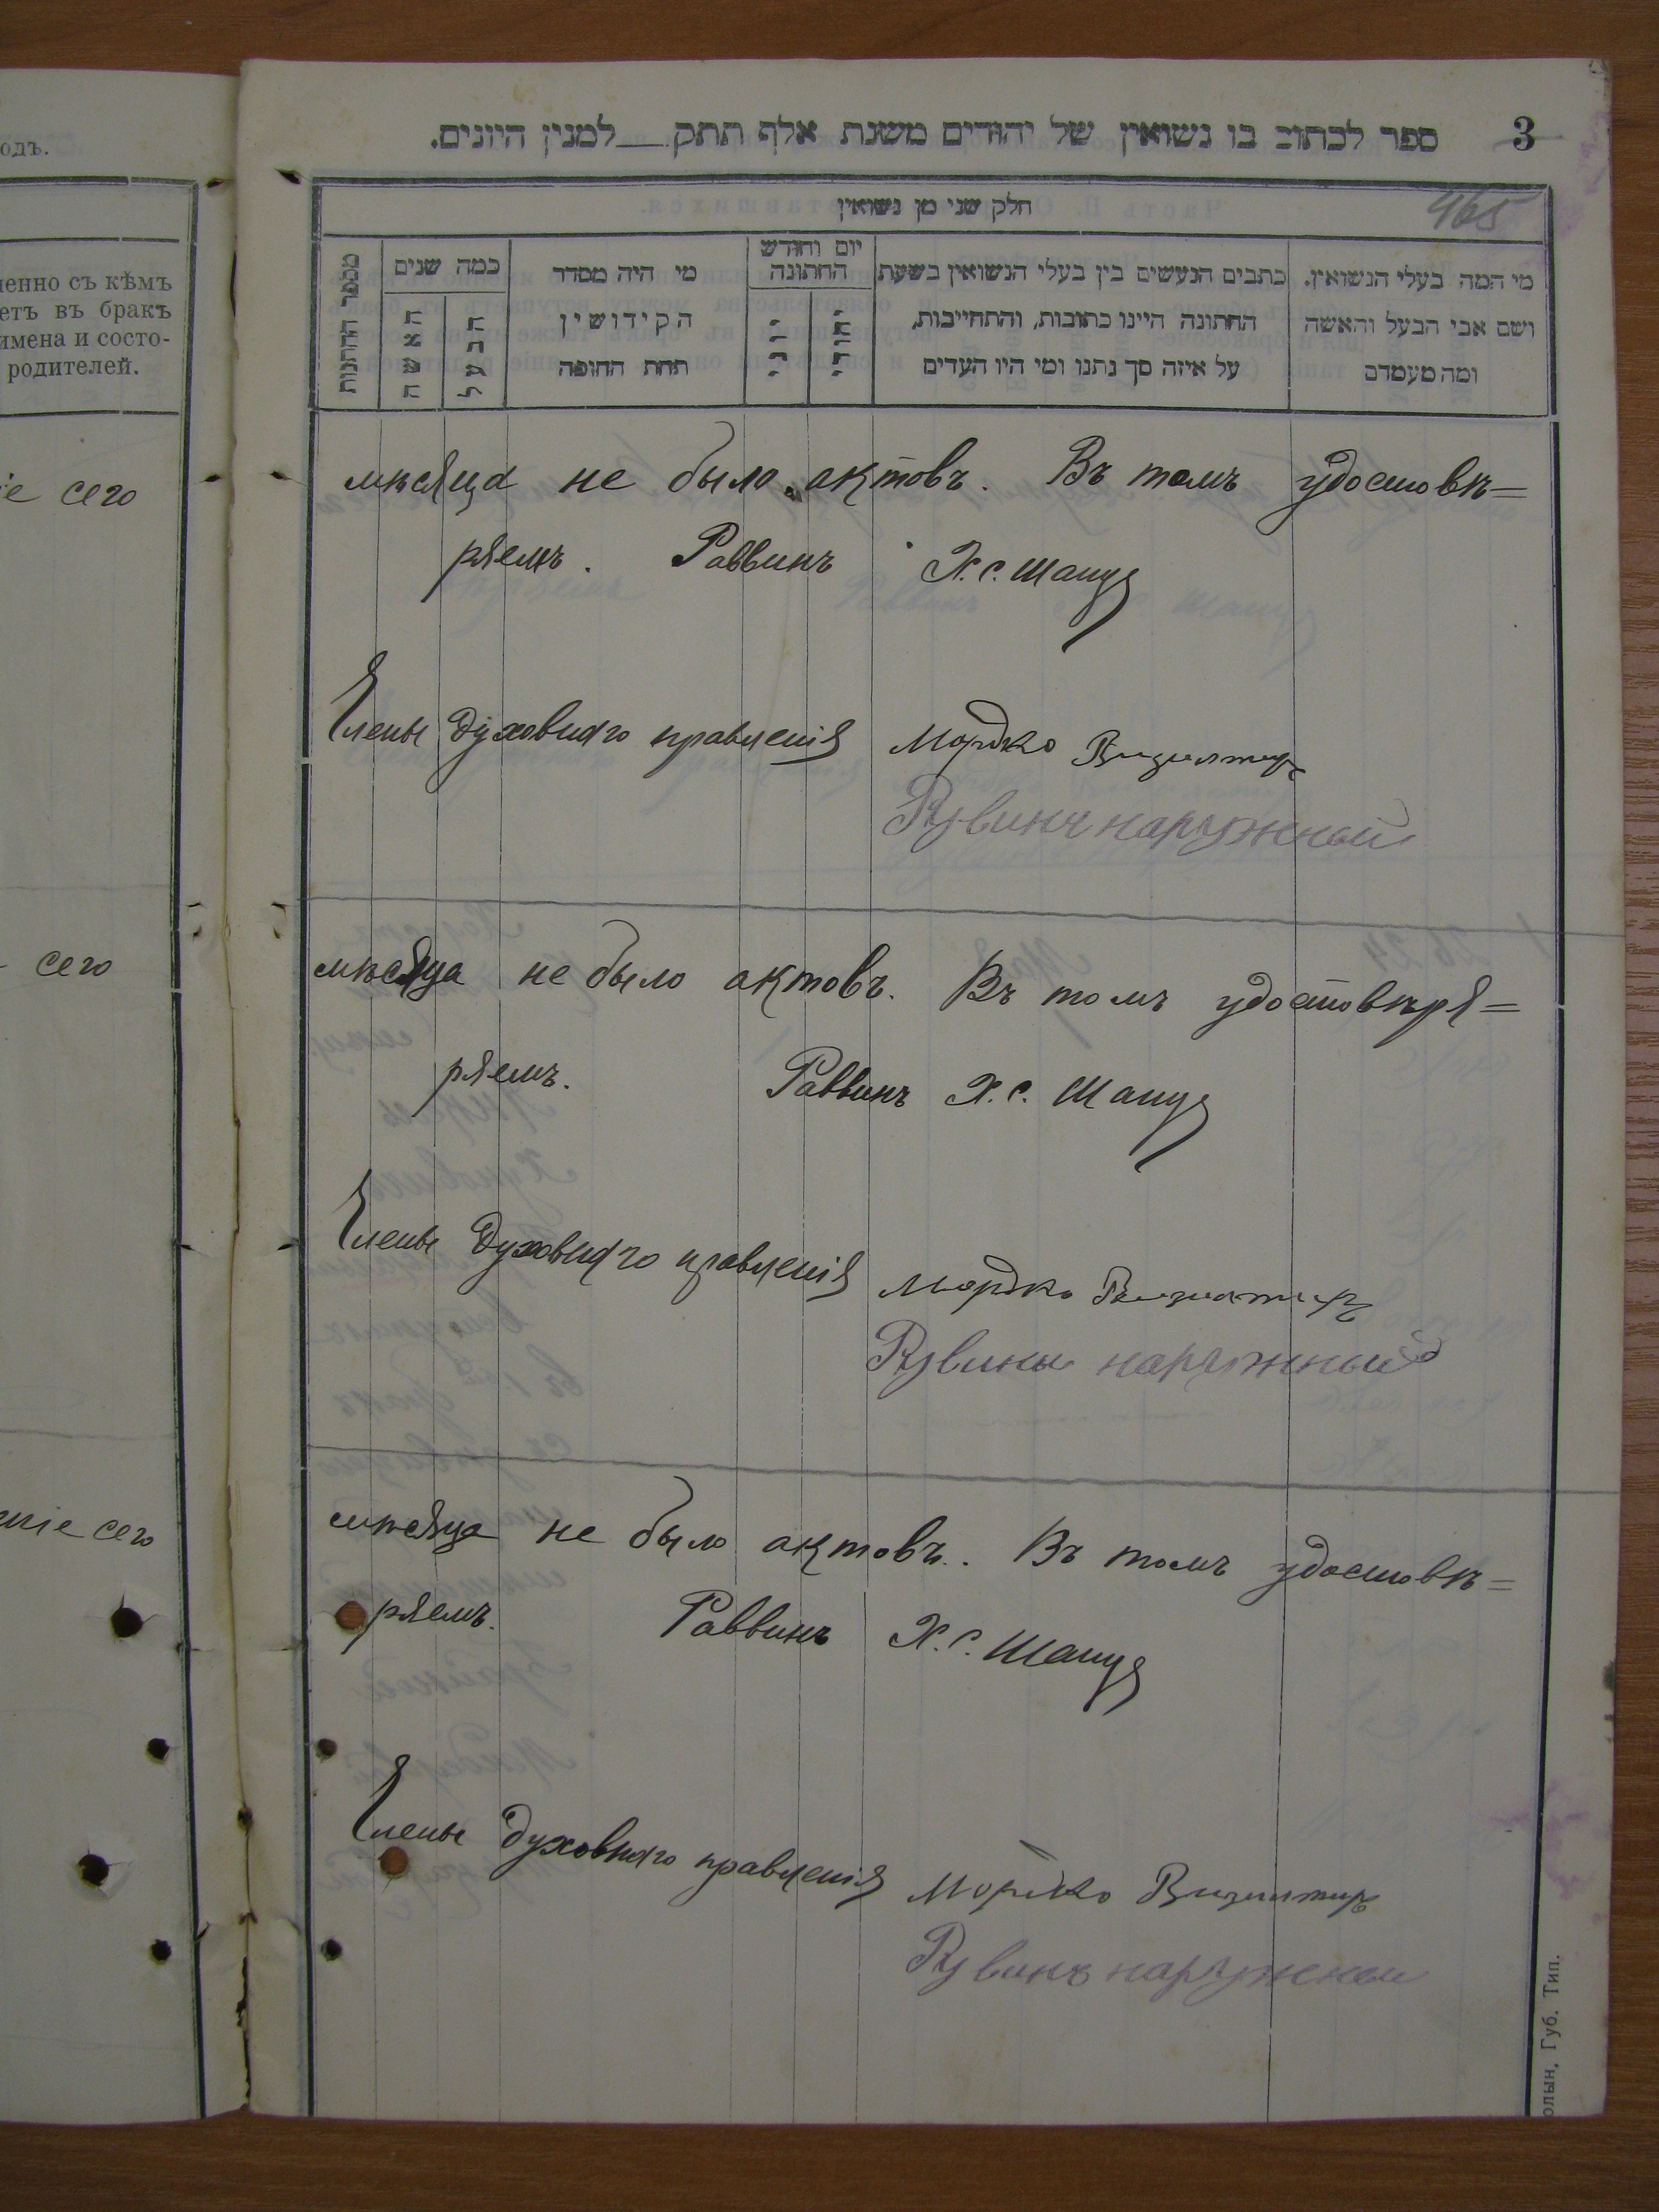 одъ.
менно съ кѣмъ
етъ въ бракъ
имена и состо-
родителей.
іе сего
сего
ніе сего
3
ספר לכתוב בו נשואין של יהודים משנת אלף תתק למנין היונים.
465
חלק שני מן נשואין
מספר החתונות
כמה שנים
האשה
הבעל
מי היה מסדר
הקידושין
תחת החופה
יום וחודש
החתונה
יוני
יהודי
כתבים הנעשים בין בעלי הנשואין בשעת
החתונה היינו כתובות, והתחייבות,
על איזה סך נתנו ומי היו העדים
מי המה בעלי הנשואין.
ושם אבי הבעל והאשה
ומה מעמדם
мѣсяца не было актовъ. Въ томъ удостовѣ=
ряемъ. Раввинъ Х. С. Шапу
Члены духовнаго правленія Мордко Визилтиръ
Рувинъ наружный
мѣсяца не было актовъ. Въ томъ удостовѣря=
ряемъ. Раввинъ Х. С. Шапу
Члены духовнаго правленія Мордко Визилтиръ
Рувинъ наружный
мѣсяца не было актовъ. Въ томъ удостовѣ=
ряемъ. Раввинъ Х. С. Шапу
Члены духовнаго правленія Мордко Визилтиръ
Рувинъ наружный
олын, Губ. Тип.